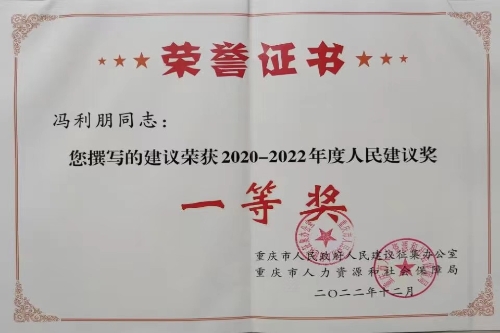 荣誉证书
冯利朋同志：
您撰写的建议荣获2020-2022年度人民建议奖
一等奖
重庆市人民政府人民建议征集办公室
重庆市人力资源和社会保障局
二〇二二年十二月